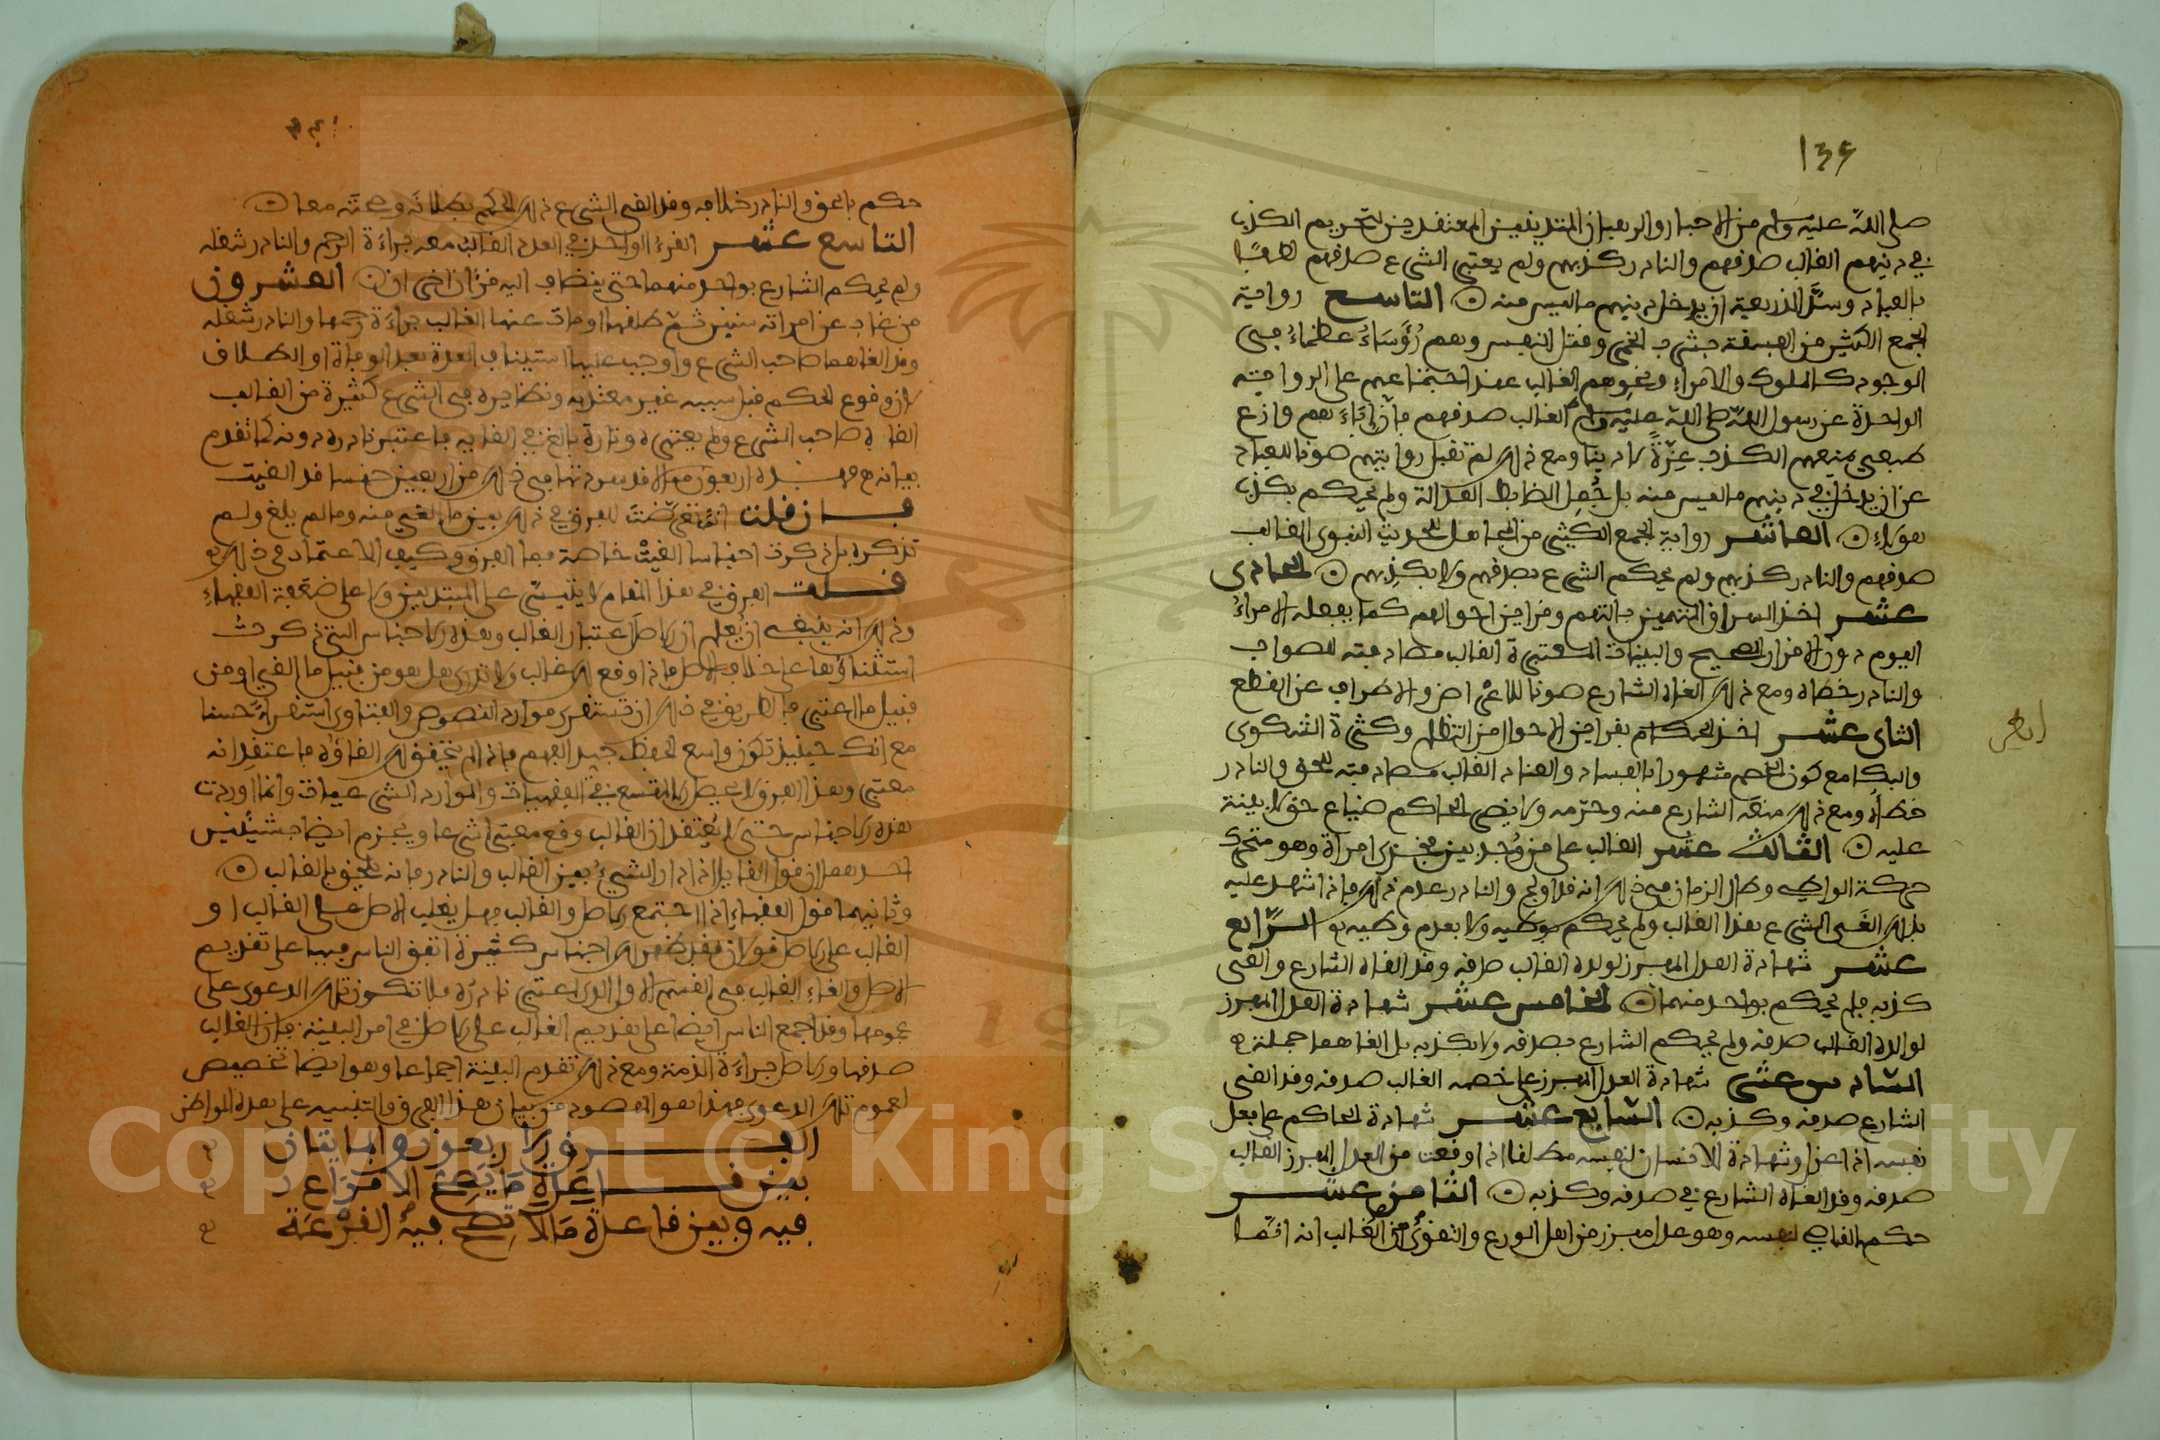 136
صلى الله عليه وسلم من الاحبار والرهبان المتدينين المعتقدين لتحريم الكذب
في دينهم الغالب صدقهم والنادر كذبهم ولم يعتبر الشرع صدقهم لطفا
بالعباد وسدا لذريعة ان يدخل دينهم ما ليس منه ۞ التاسع رواية
الجمع الكثير من الفسقة بشرب الخمر وقتل النفس وهم رؤساء عظماء في
الوجود كالملوك والامراء ونحوهم الغالب عند اجتماعهم على الرواية
الواحدة عن رسول الله صلى الله عليه وسلم الغالب صدقهم فان اباءهم وازع
طبعي يمنعهم الكذب عزة لا دينا ومع ذلك لم تقبل روايتهم صونا للعباد
عن ان يدخل في دينهم ما ليس منه بل جعل الضابط العدالة ولم يحكم بكذب
هولاء ۞ العاشر رواية الجمع الكثير من الجاهل للحديث النبوي الغالب
صدقهم والنادر كذبهم ولم يحكم الشرع بصدقهم ولا بكذبهم ۞ الحادي
عشر اخذ السراق المتهمين بالتهم وقراين احوالهم كما يفعله الامراء
اليوم دون الاقرار الصحيح والبينات المعتبرة الغالب مصادفته للصواب
والنادر خطاه ومع ذلك الغاه الشارع صونا للاعراض والاطراف عن القطع
الثاني عشر اخذ الحكام بقراين الاحوال من التظلم وكثرة الشكوى
والبكا مع كون الخصم مشهورا بالفساد والعناد الغالب مصادفته للحق والنادر
خطأه ومع ذلك منعه الشارع منه وحرمه ولا يضر الحاكم ضياع حق لا بينة
عليه ۞ الثالث عشر الغالب على من وجد بين فخذي امراة وهو متحرك
حركة الواطي وطال الزمان في ذلك انه قد اولج والنادر عدم ذلك فاذا شهد عليه
بذلك الغى الشرع هذا الغالب ولم يحكم بوطيه ولا بعدم وطيه الرابع
عشر شهادة العدل المبرز لولده الغالب صدقه وقد الغاه الشارع والغى
كذبه فلم يحكم بواحد منهما ۞ الخامس عشر شهادة العدل المبرز
لوالده الغالب صدقه ولم يحكم الشارع بصدقه ولا بكذبه بل الغاهما جملة
السادس عشر شهادة العدل المبرز على خصمه الغالب صدقه وقد الغى
الشارع صدقه وكذبه ۞ السابع عشر شهادة الحاكم على فعل
نفسه اذا عزل وشهادة الانسان لنفسه مطلقا اذا وقعت من العدل المبرز الغالب
صدقه وقد الغاه الشارع في صدقه وكذبه ۞ الثامن عشر
حكم القاضي لنفسه وهو عدل مبرز من اهل الورع والتقوى الغالب انه انما
حكم بالحق والنادر خلافه وقد الغى الشرع ذلك الحكم ببطلانه وصحته معا ۞
التاسع عشر القرء الواحد في العدد الغالب معه براءة الرحم والنادر شغله
ولم يحكم الشارع بواحد منهما حتى ينضاف اليه قرآن اخران ۞ العشرون
من غاب عن امراته سنين ثم طلقها او مات عنها الغالب براءة رحمها والنادر شغله
وقد الغاهما صاحب الشرع واوجب عليها استيناف العدة بعد الوفاة او الطلاق
لان وقوع الحكم قبل سببه غير معتد به ونظايره في الشرع كثيرة من الغالب
الغاه صاحب الشرع ولم يعتبره وتارة بالغ في الغايه فاعتبر نادره دونه كما تقدم
بيانه فهذه اربعون مثالا قد سردتها في ذلك من اربعين جنسا قد الغيت
فان قلت انت قد تعرضت للفرق في ذلك بين ما الغي منه وما لم يلغ ولم
تذكره بل ذكرت اجناسا الغيت خاصة فما الفرق وكيف الاعتماد في ذلك
قلت الفرق في هذا المقام لا يتيسر على المبتدين ولا على ضعفة الفقهاء
وذلك انه ينبغي ان يعلم ان الاصل اعتبار الغالب وهذه الاجناس التي ذكرت
استثناؤها على خلاف الاصل فاذا وقع لك غالب ولا تدري هل هو من قبيل ما الغي او من
قبيل ما اعتبر فالطريق في ذلك ان تستقري موارد النصوص والفتاوى استقراء حسنا
مع انك حينيذ تكون واسع الحفظ جيد الفهم فاذا لم يتحقق لك الغاؤه فاعتقد انه
معتبر وهذا الفرق لا يحصل الا لمتسع في الفقهيات والموارد الشرعيات وانما اوردت
هذه الاجناس حتى لا يعتقد ان الغالب وقع معتبرا شرعا ويجزم ايضا بشيئين
احدهما ان قول القايل اذا دار الشيء بين الغالب والنادر فانه يلحق بالغالب ۞
وثانيهما قول الفقهاء اذا اجتمع الاصل والغالب فهل يغلب الاصل على الغالب او
الغالب على الاصل قولان فقد ظهر لك اجناس كثيرة اتفق الناس فيها على تقديم
الاصل والغاء الغالب في القسم الاول الذي اعتبر نادره فلا تكون تلك الدعوى على
عمومها وقد اجمع الناس ايضا على تقديم الغالب على الاصل في امر البينة فان الغالب
صدقها والاصل براءة الذمة ومع ذلك تقدم البينة اجماعا وهو ايضا تخصيص
لعموم تلك الدعوى فهذا هو المقصود من بيان هذا الفرق والتنبيه على هذه المواطن
الفرق الاربعون والمايتان
بين قاعدة ما يصح الاقراع
فيه وبين قاعدة ما لا تصح فيه القرعة